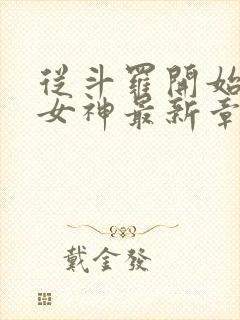 從斗羅開始
女神最新章
戴金發